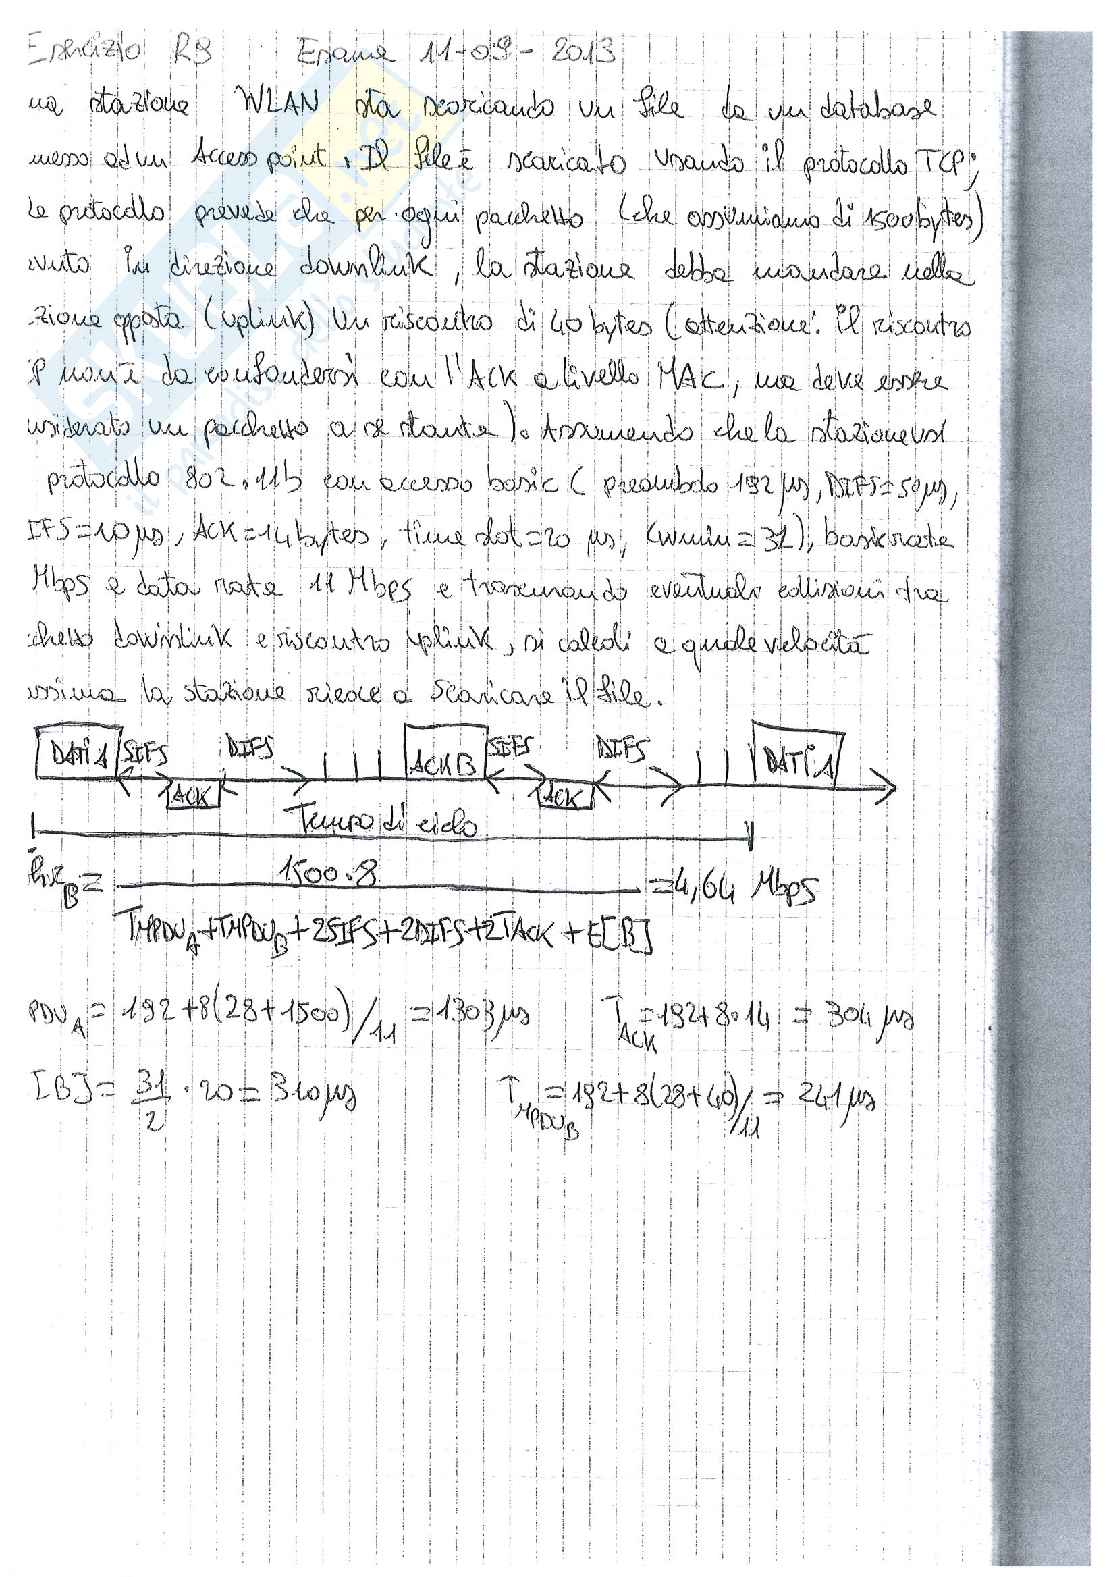 Esercizio RB Esame 11-09-2013
na stazione WLAN sta scaricando un file da un database
messo ad un Access point. Il file è scaricato usando il protocollo TCP;
le protocollo prevede che per ogni pacchetto (che assumiamo di 1500 bytes)
evuto in direzione downlink, la stazione debba mandare nella
zione opposta (uplink) un riscontro di 40 bytes (attenzione: il riscontro
P non è da confondersi con l'ACK a livello MAC, ma deve essere
nsiderato un pacchetto a se stante). Assumendo che la stazione usi
protocollo 802.11b con accesso basic (preambolo 192 μs, DIFS=50μs,
IFS=10μs, ACK=14bytes, time slot=20 μs, CWmin=31), basic rate
Mbps e data rate 11 Mbps e trascurando eventuali collisioni tra
chetto downlink e riscontro uplink, si calcoli a quale velocità
ssima la stazione riesce a scaricare il file.
DATI A SIFS DIFS ACK B SIFS DIFS DATI A
ACK ACK
Tempo di ciclo
B = 1500·8 = 4,64 Mbps
TMPDU_A+TMPDU_B+2SIFS+2DIFS+2TACK+E[B]
PDU_A = 192+8(28+1500)/11 = 1303μs T_ACK=192+8·14 = 304 μs
[B]= 31/2 · 20 = 310μs T_MPDU_B=192+8(28+40)/11 = 241μs